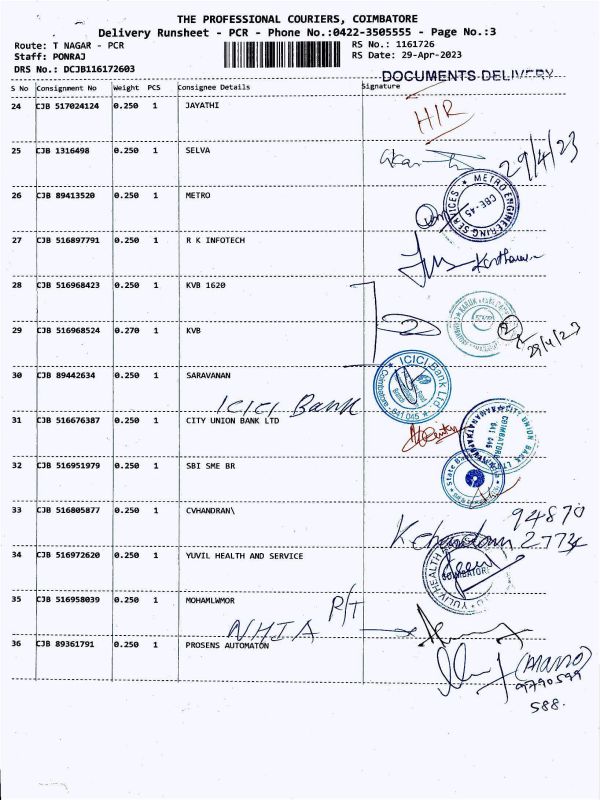 THE PROFESSIONAL COURIERS, COIMBATORE
Delivery Runsheet - PCR - Phone No.:0422-3505555 - Page No.:3
Route: T NAGAR - PCR RS No.: 1161726
Staff: PONRAJ RS Date: 29-Apr-2023
DRS No.: DCJB116172603
DOCUMENTS DELIVERY
S No Consignment No Weight PCS Consignee Details Signature
24 CJB 517024124 0.250 1 JAYATHI H/R
25 CJB 1316498 0.250 1 SELVA 29/4/23
26 CJB 89413520 0.250 1 METRO METRO ENGINEERING SERVICES CBE-45
27 CJB 516897791 0.250 1 R K INFOTECH
28 CJB 516968423 0.250 1 KVB 1620
29 CJB 516968524 0.270 1 KVB 29/4/23
30 CJB 89442634 0.250 1 SARAVANAN ICICI Bank Ltd Coimbatore 641 045
ICICI Bank
31 CJB 516676387 0.250 1 CITY UNION BANK LTD CITY UNION BANK LTD COIMBATORE 641 045
32 CJB 516951979 0.250 1 SBI SME BR State Ba
33 CJB 516805877 0.250 1 CVHANDRAN\ 94870
2773
34 CJB 516972620 0.250 1 YUVIL HEALTH AND SERVICE COIMBATORE
35 CJB 516958039 0.250 1 MOHAMLWMOR R/T
NHIA
36 CJB 89361791 0.250 1 PROSENS AUTOMATON
9790599
588.